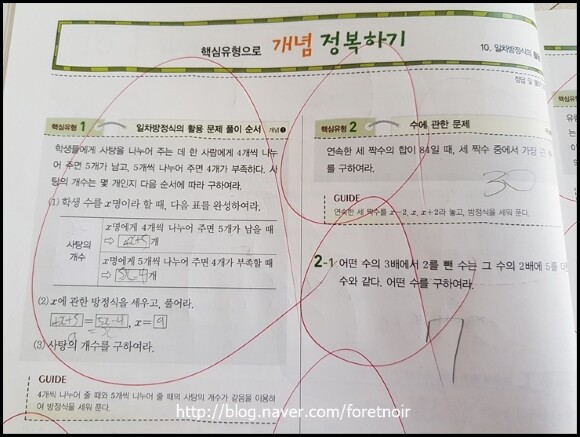 핵심유형으로 개념 정복하기
10. 일차방정식의 활용
정답 및 풀이
핵심유형 1 일차방정식의 활용 문제 풀이 순서 개념 1
학생들에게 사탕을 나누어 주는 데 한 사람에게 4개씩 나누
어 주면 5개가 남고, 5개씩 나누어 주면 4개가 부족하다. 사
탕의 개수는 몇 개인지 다음 순서에 따라 구하여라.
(1) 학생 수를 x명이라 할 때, 다음 표를 완성하여라.
사탕의
개수
x명에게 4개씩 나누어 주면 5개가 남을 때
⇨ 4x+5 개
x명에게 5개씩 나누어 주면 4개가 부족할 때
⇨ 5x-4 개
(2) x에 관한 방정식을 세우고, 풀어라.
4x+5 = 5x-4, x= 9
(3) 사탕의 개수를 구하여라.
GUIDE
4개씩 나누어 줄 때와 5개씩 나누어 줄 때의 사탕의 개수가 같음을 이용하
여 방정식을 세워 푼다.
핵심유형 2 수에 관한 문제
연속한 세 짝수의 합이 84일 때, 세 짝수 중에서 가장 큰 수
를 구하여라.
30
GUIDE
연속한 세 짝수를 x-2, x, x+2라 놓고, 방정식을 세워 푼다.
2-1 어떤 수의 3배에서 2를 뺀 수는 그 수의 2배에 5를 더
수와 같다. 어떤 수를 구하여라.
7
http://blog.naver.com/foretnoir